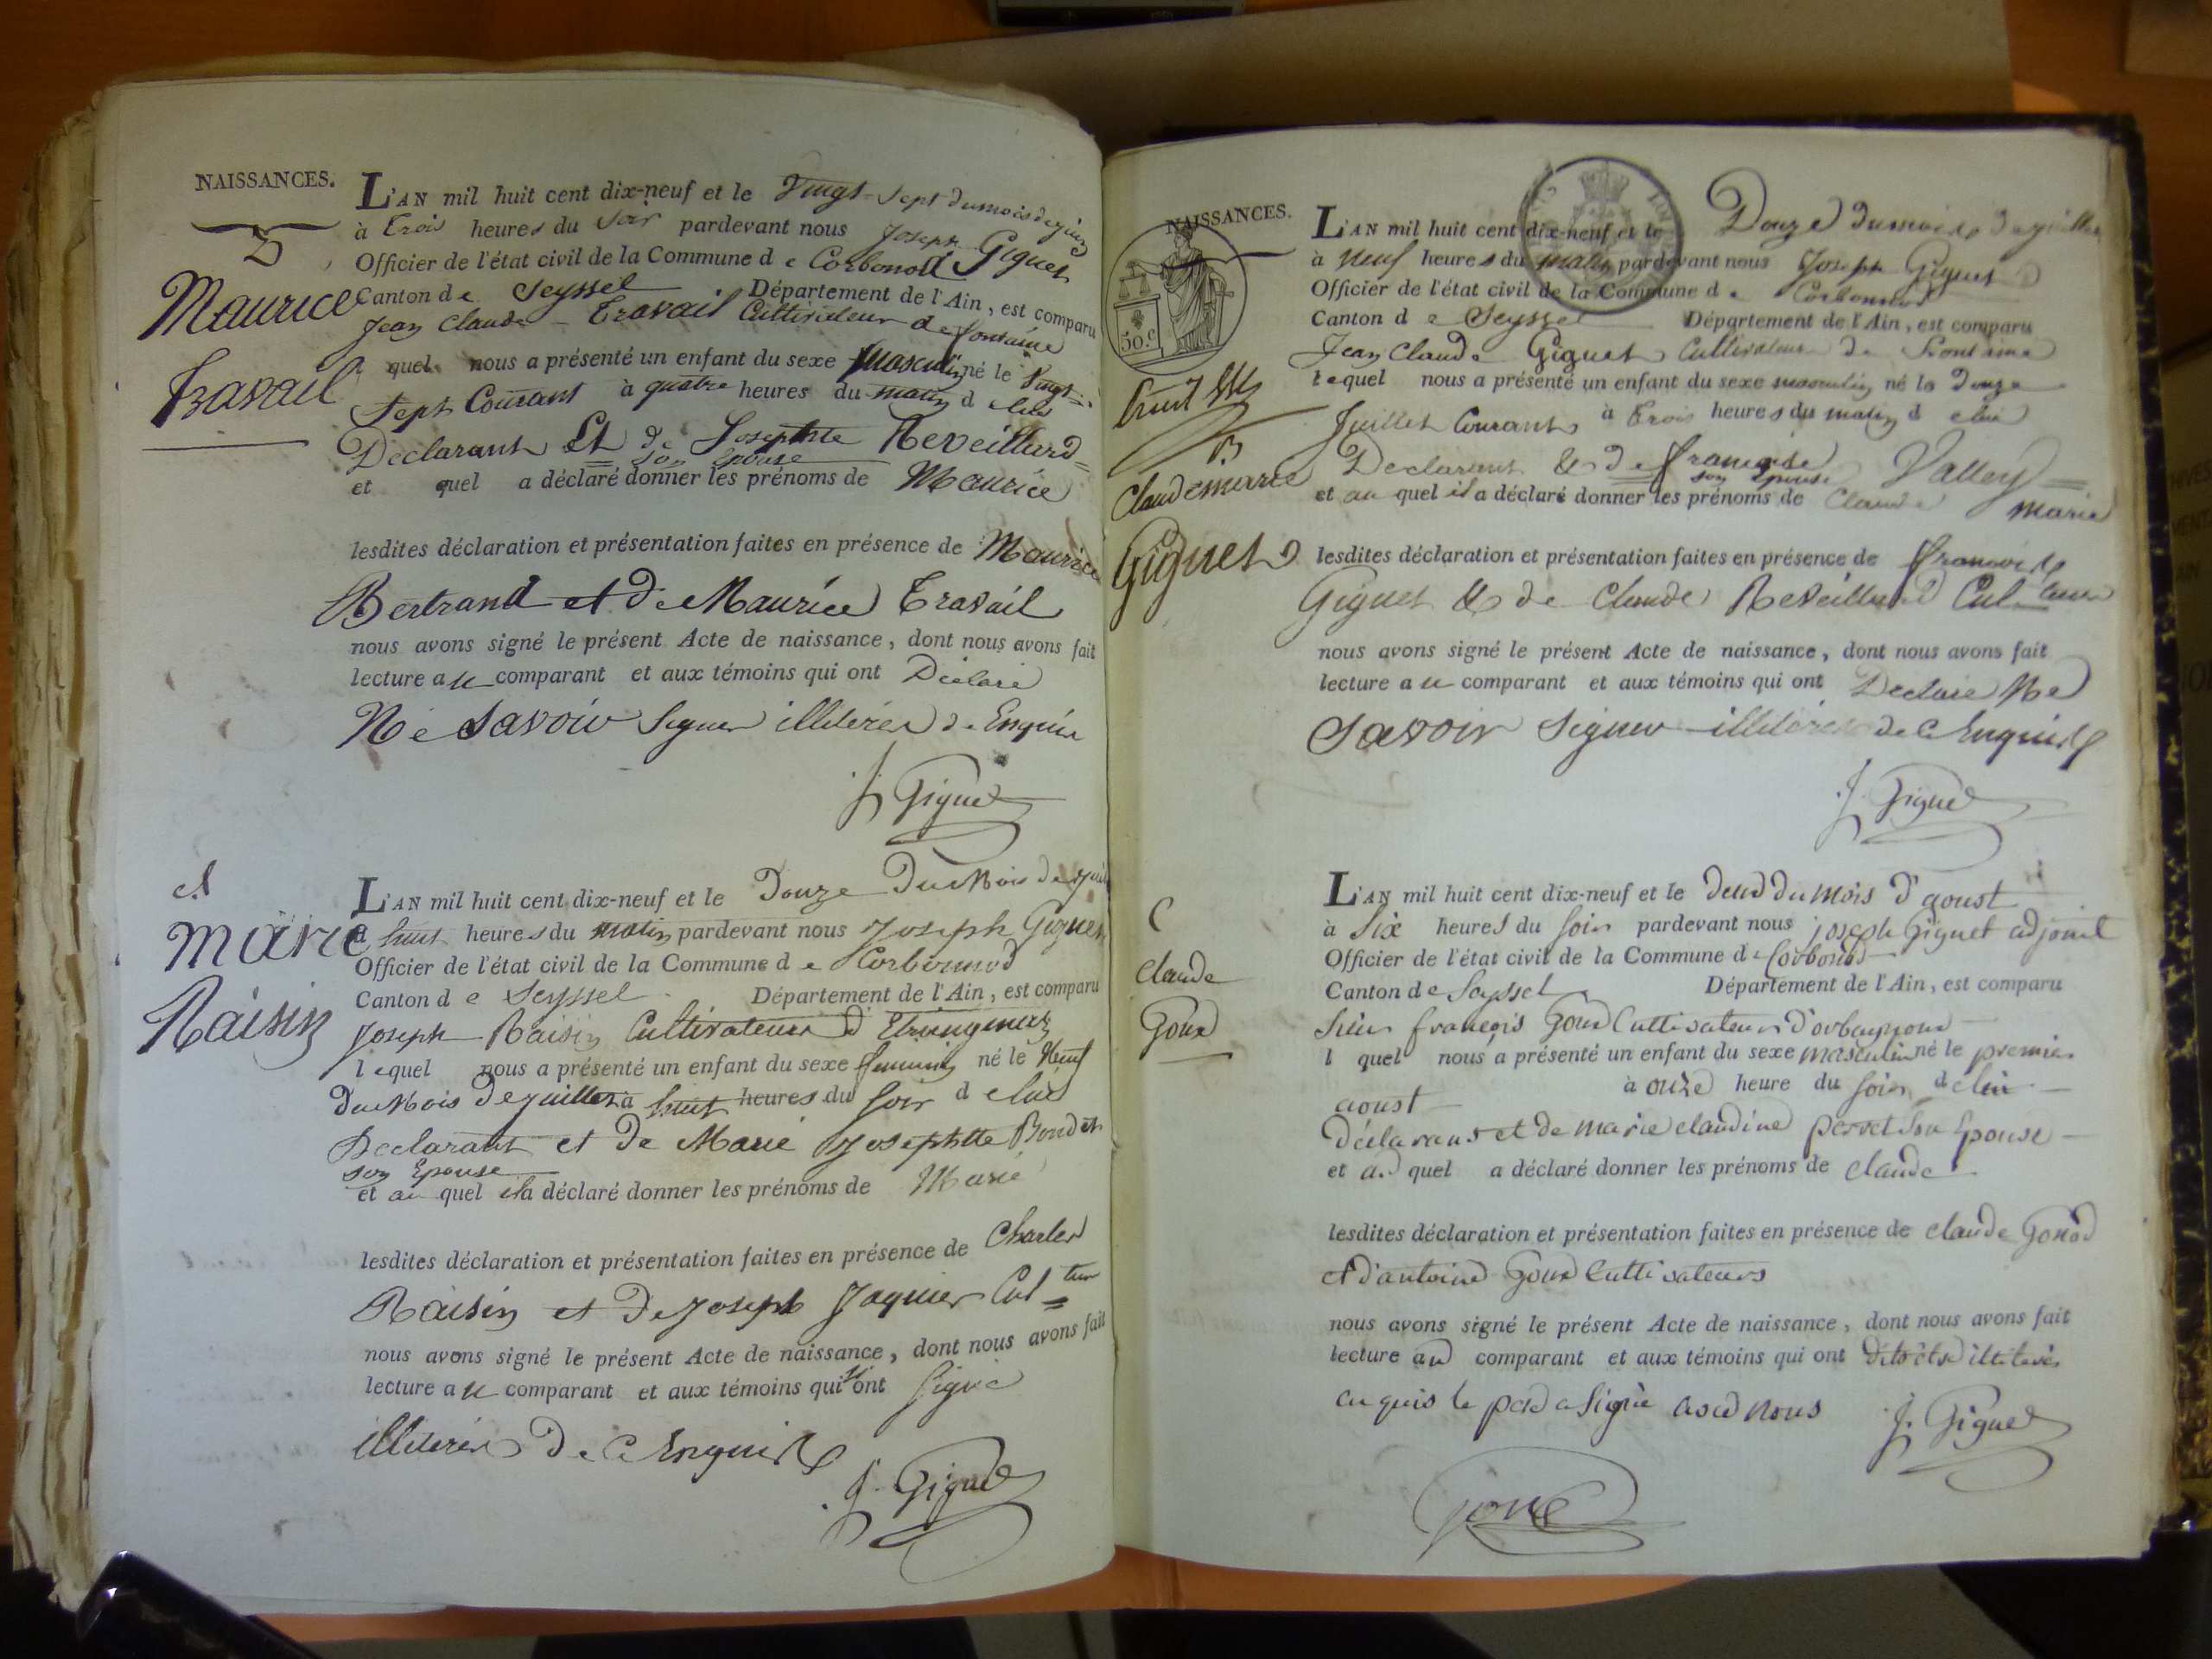 NAISSANCES.
L'AN mil huit cent dix-neuf et le Vingt-sept du mois de juin
à trois heures du soir pardevant nous Joseph Giguet
Officier de l'état civil de la Commune de Corbonod
Canton de Seyssel Département de l'Ain, est comparu
Jean Claude Travail Cultivateur de fontaine
quel nous a présenté un enfant du sexe Masculin né le Vingt-
sept Courant à quatre heures du matin d elui
Declarant Et de Josephte Reveillard
son Epouse
et quel a déclaré donner les prénoms de Maurice
lesdites déclaration et présentation faites en présence de Maurice
Bertrand et de Maurice Travail
nous avons signé le présent Acte de naissance, dont nous avons fait
lecture au comparant et aux témoins qui ont Déclaré
Ne Savoir Signer illiterés de Enquis
J. Giguet
Maurice
Travail
L'AN mil huit cent dix-neuf et le Douze Du Mois de
à huit heures du matin pardevant nous Joseph Giguet
Officier de l'état civil de la Commune de Corbonnod
Canton de Seyssel Département de l'Ain, est comparu
Joseph Raisin Cultivateur d'
lequel nous a présenté un enfant du sexe feminin né le Neuf
Du Mois De juillet à huit heures du soir d elui
Declarant et de Marie Josephtte
son Epouse
et au quel il a déclaré donner les prénoms de Marie
lesdites déclaration et présentation faites en présence de Charles
Raisin et De Joseph Jaquier Cul=teur
nous avons signé le présent Acte de naissance, dont nous avons fait
lecture au comparant et aux témoins qui ont signé
illiterés De Ce Enquis
J. Giguet
Marie
Raisin
NAISSANCES.
50.c
L'AN mil huit cent dix-neuf et le Douze du mois de juillet
à Neuf heures du matin pardevant nous Joseph Giguet
Officier de l'état civil de la Commune de Corbonnod
Canton de Seyssel Département de l'Ain, est comparu
Jean Claude Giguet Cultivateur de fontaine
lequel nous a présenté un enfant du sexe masculin né le Douze
Juillet Courant à trois heures du matin d elui
Declarant & de françoise Valley
son Epouse
et au quel il a déclaré donner les prénoms de Claude Marie
lesdites déclaration et présentation faites en présence de françois
Giguet & de Claude Reveillard Cul=teurs
nous avons signé le présent Acte de naissance, dont nous avons fait
lecture au comparant et aux témoins qui ont Declaré Ne
Savoir Signer illiterés de ce Enquis
J. Giguet
B
Claude marie
Giguet
L'AN mil huit cent dix-neuf et le deux du mois d'aoust
à Six heures du soir pardevant nous joseph Giguet adjoint
Officier de l'état civil de la Commune de Corbonod
Canton de Seyssel Département de l'Ain, est comparu
Sieur françois Goux Cultivateur d'orbagnoux
l quel nous a présenté un enfant du sexe masculin né le premier
aoust à onze heure du soir d elui
déclarant et de marie claudine perret son Epouse
et au quel a déclaré donner les prénoms de claude
lesdites déclaration et présentation faites en présence de claude Gonod
et d'antoine Goux Cultivateurs
nous avons signé le présent Acte de naissance, dont nous avons fait
lecture au comparant et aux témoins qui ont dit être illiterés
enquis le père a signé avec nous
J. Giguet
Goux
C
claude
Goux